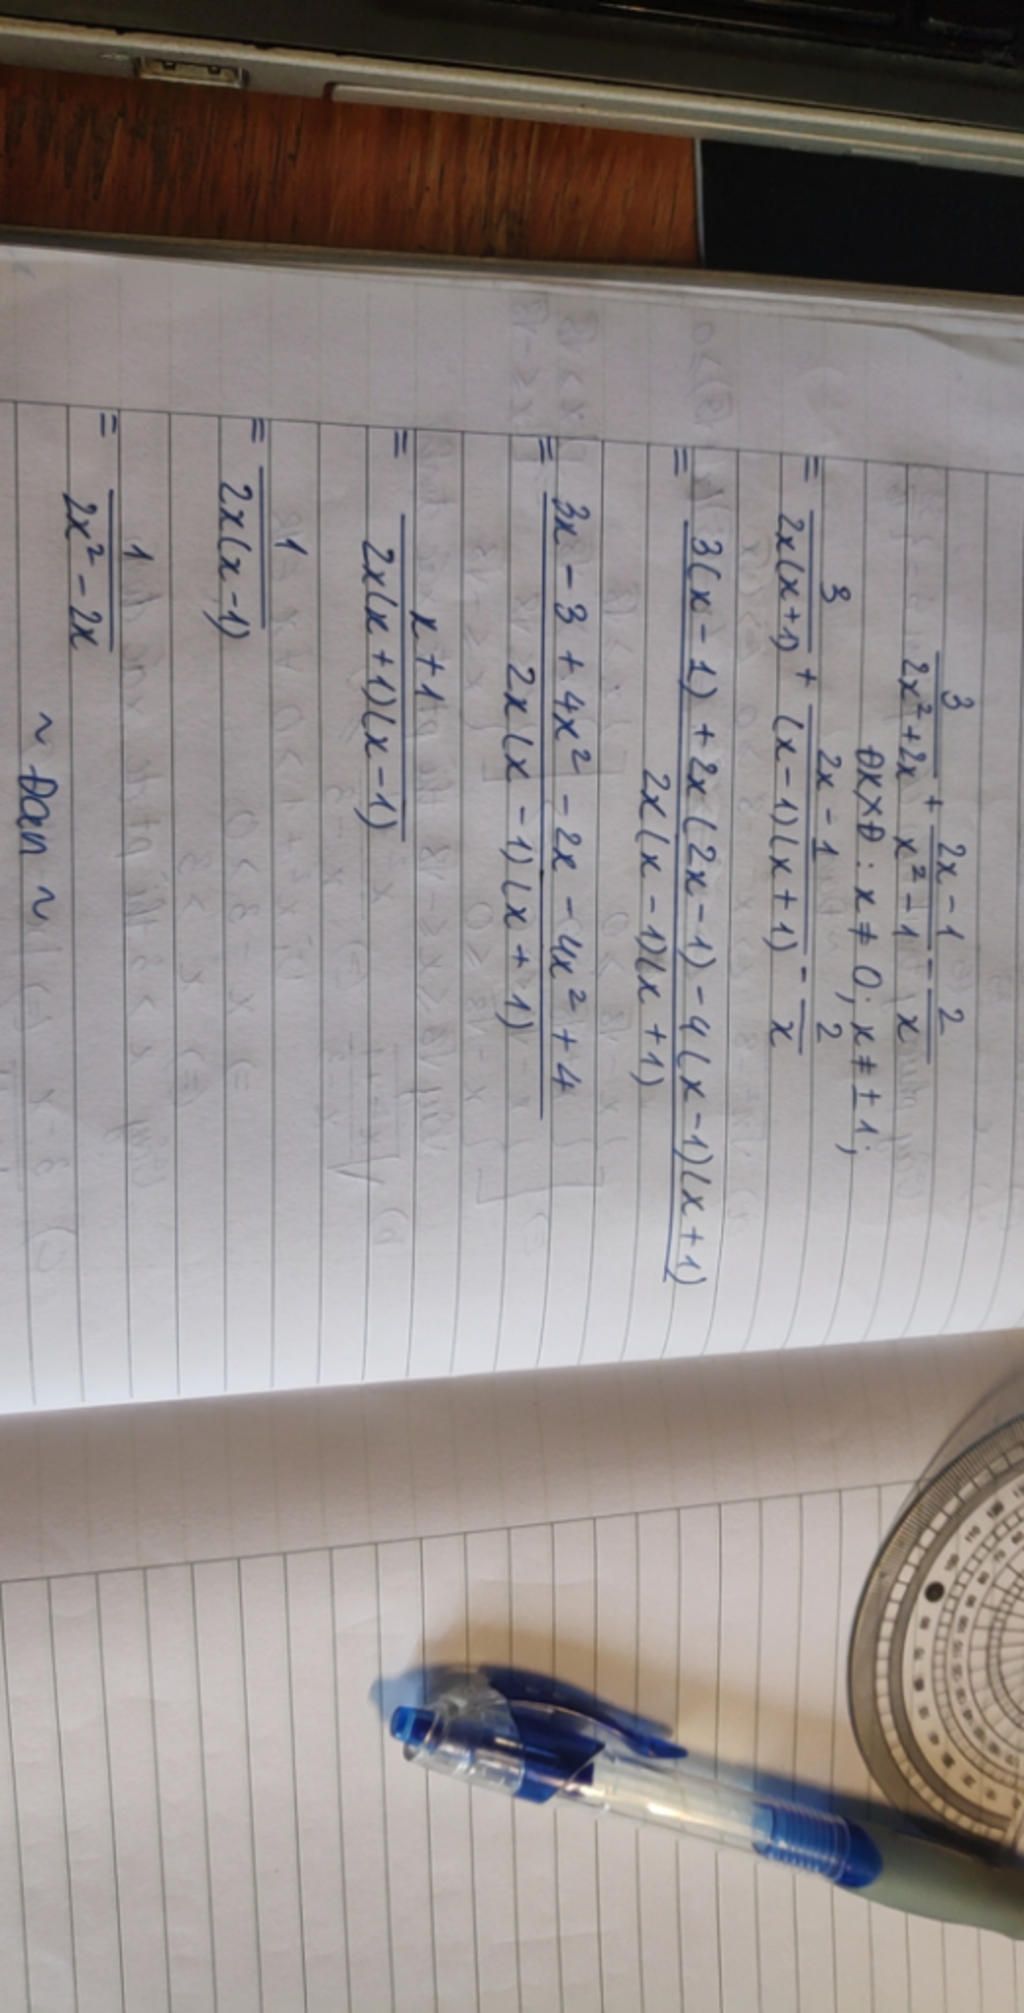 3/(2x² + 2x) + (2x - 1)/(x² - 1) - 2/x
ĐKXĐ: x ≠ 0; x ≠ ±1;
= 3/(2x(x+1)) + (2x - 1)/((x-1)(x+1)) - 2/x
= (3(x - 1) + 2x(2x - 1) - 4(x - 1)(x + 1))/(2x(x - 1)(x + 1))
= (3x - 3 + 4x² - 2x - 4x² + 4)/(2x(x - 1)(x + 1))
= (x + 1)/(2x(x + 1)(x - 1))
= 1/(2x(x - 1))
= 1/(2x² - 2x)
~ Đan ~